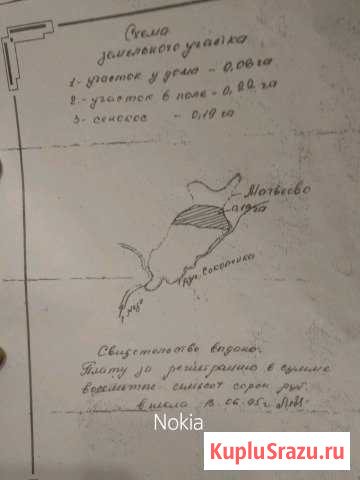 Схема
земельного участка
1 - участок у дома - 0,08 га
2 - участок в поле - 0,22 га
3 - сенокос - 0,19 га
Матвеево
0,19 га
руч. Сокотинка
Свидетельство выдано.
Плату за регистрацию в сумме
семьсот сорок руб.
внесла
Nokia
KupluSrazu.ru